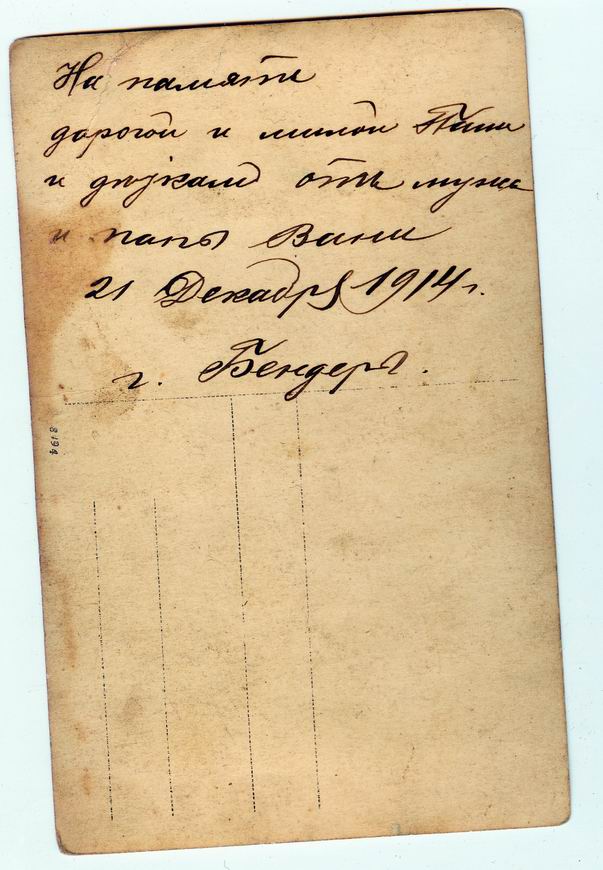 На память
дорогой и милой Пани
и доткамъ отъ мужа
и папы Вани
21 Декабря 1914 г.
г. Бендеры.
8194